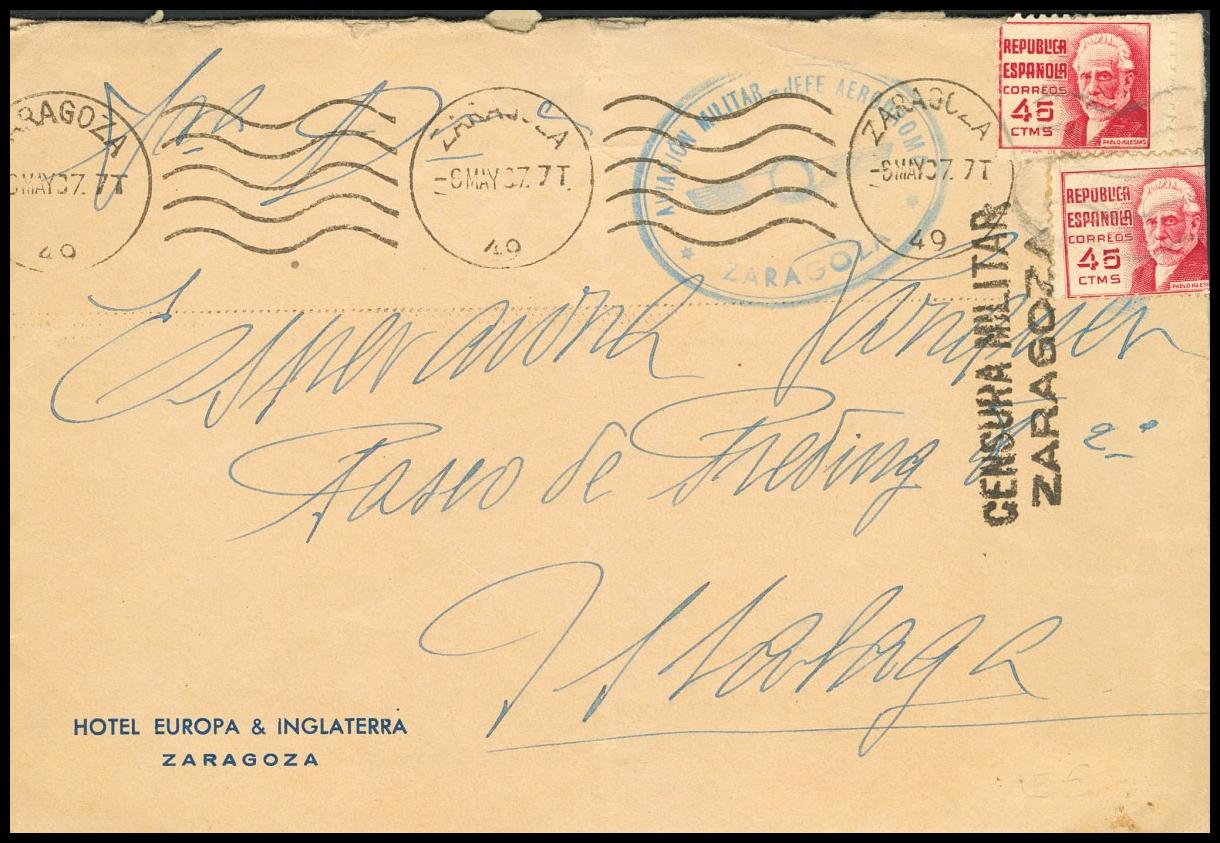 REPUBLICA
ESPAÑOLA
CORREOS
45
CTMS
PABLO IGLESIAS
REPUBLICA
ESPAÑOLA
CORREOS
45
CTMS
PABLO IGLESIAS
ZARAGOZA
MAY 37. 7T
49
ZARAGOZA
-6 MAY 37. 7T
49
AVIACION MILITAR - JEFE AERODROMO
* ZARAGOZA *
ZARAGOZA
-6 MAY 37. 7T
49
Sra Dª
Esperanza
Paseo de Reding 2º
Malaga
CENSURA MILITAR
ZARAGOZA
HOTEL EUROPA & INGLATERRA
ZARAGOZA